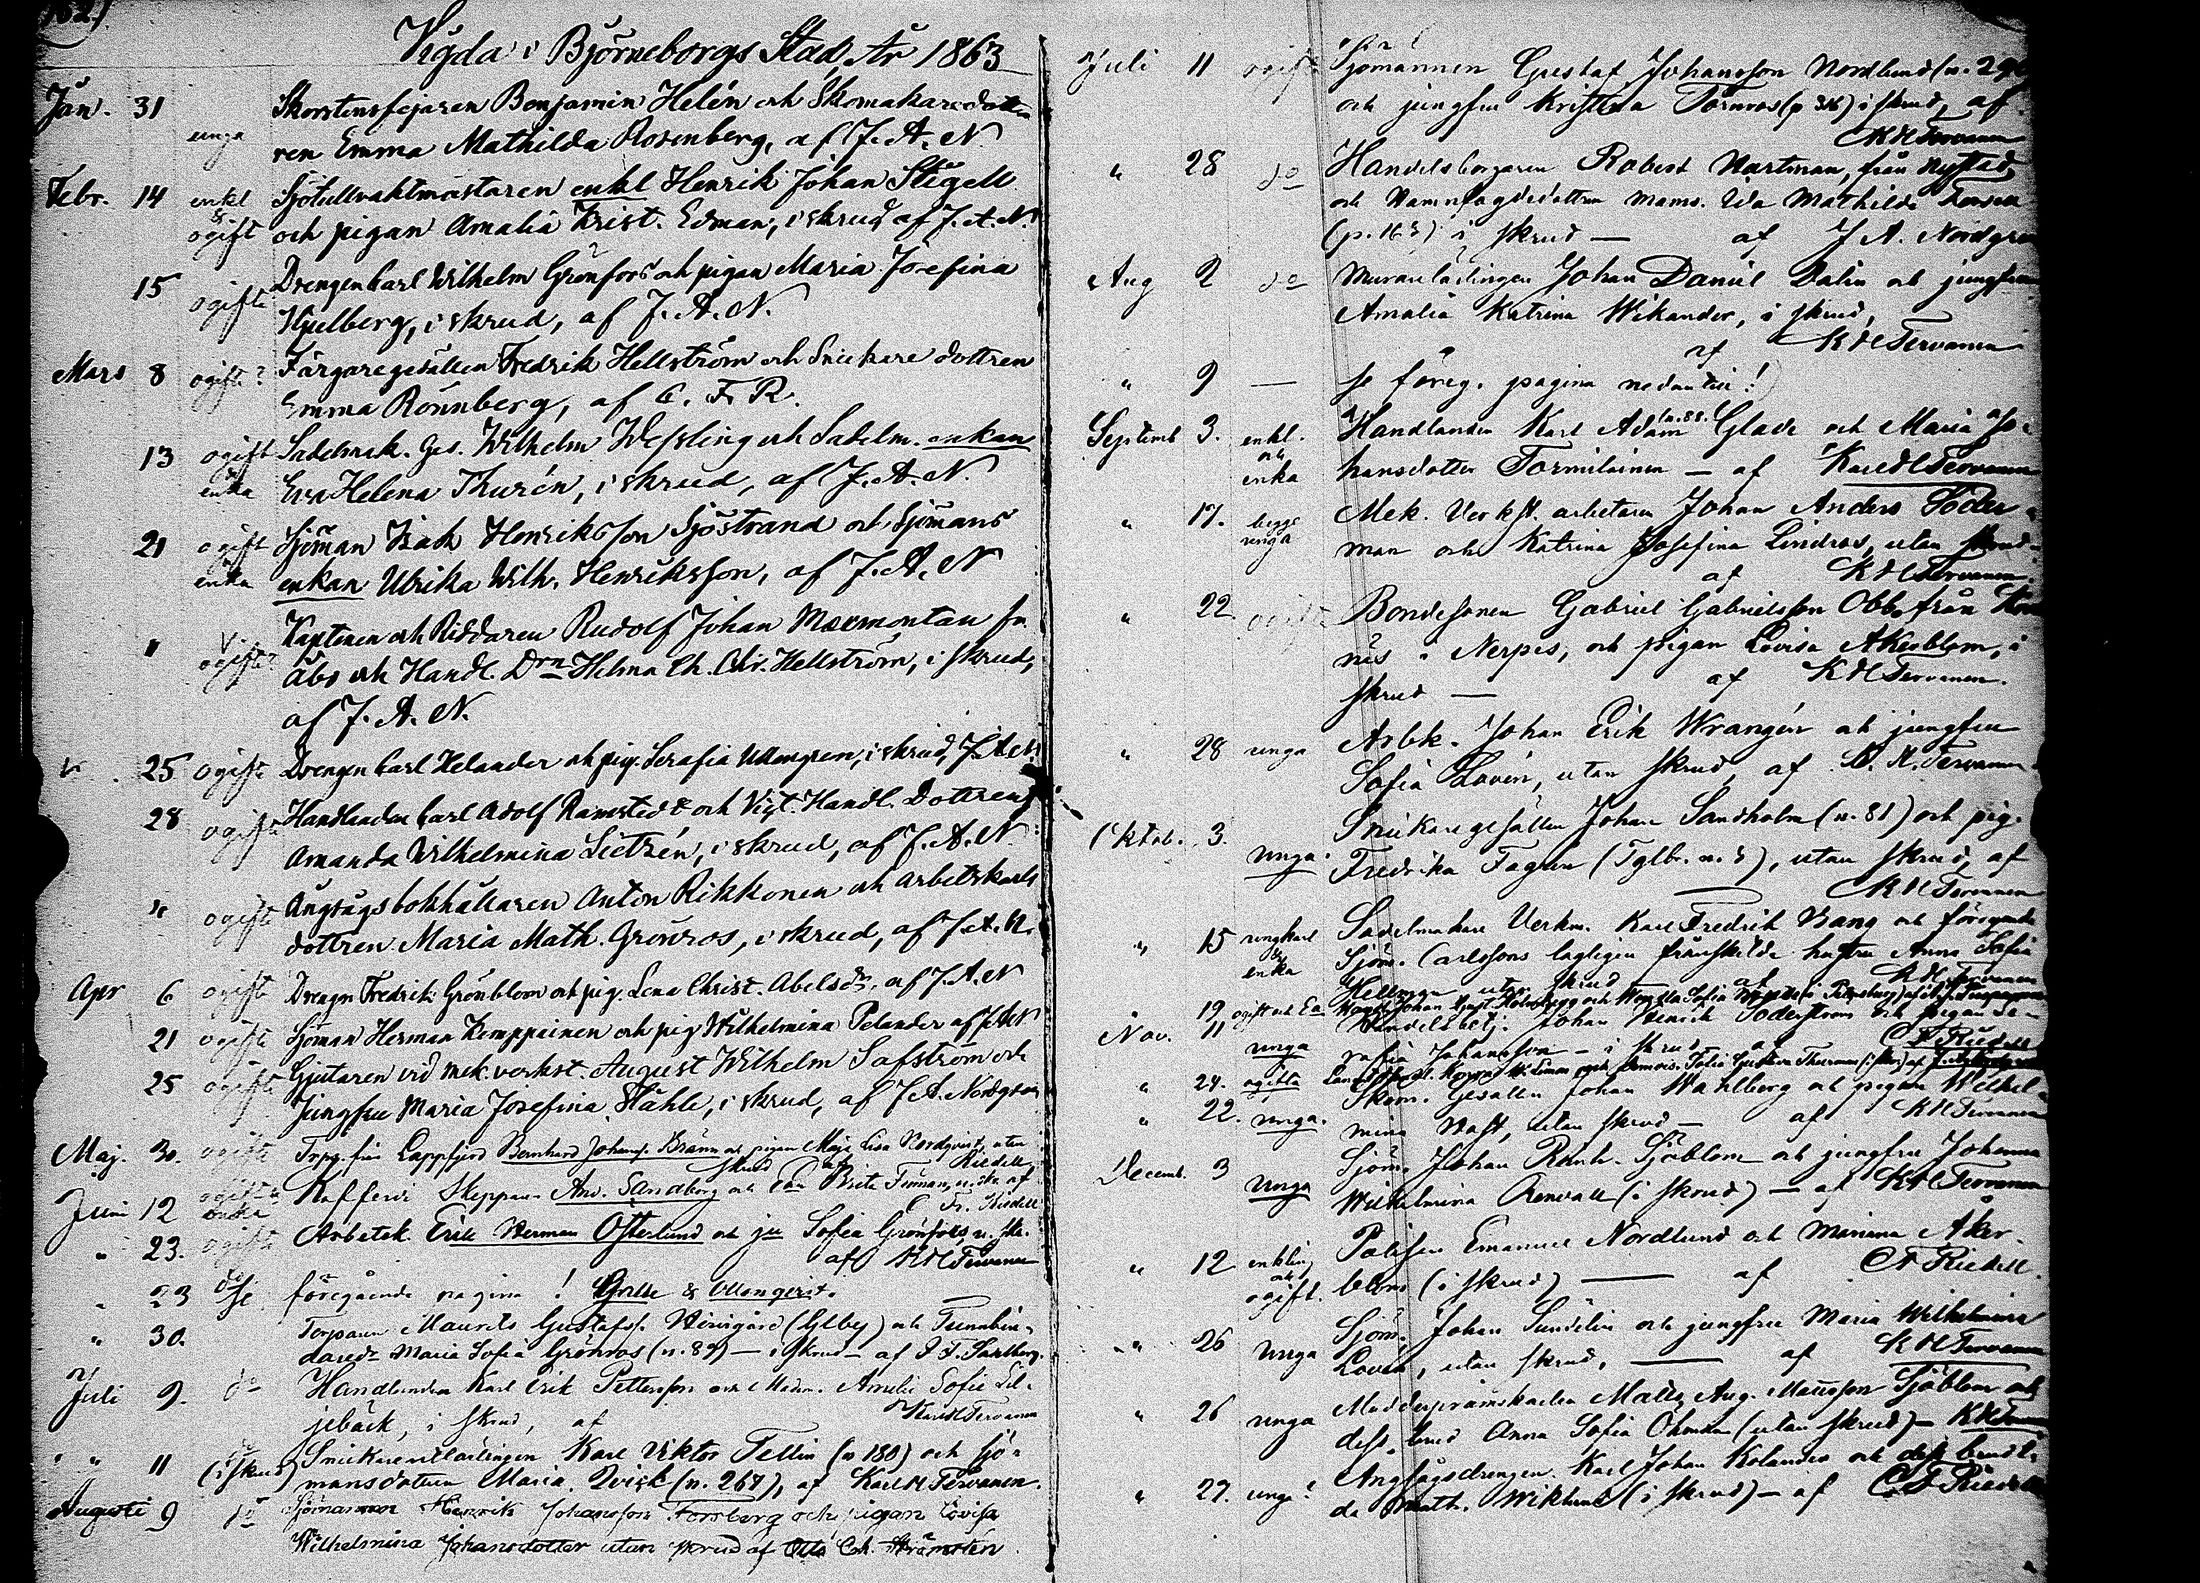 Vigda i Björneborgs Stad År 1863
Jan. 31 unga Skorstensfejaren Benjamin Helén och Skomakaredott-
ren Emma Mathilda Rosenberg, af J. A. N.
Febr. 14 enkl & ogift Sjötullvaktmästaren enkl Henrik Johan Stigell
och pigan Amalia Krist. Edman, i skrud af J. A. N.
15 ogifte Drengen Carl Wilhelm Grönfors och pigan Maria Josefina
Hjelberg, i skrud, af J. A. N.
Mars 8 ogifte? Färgaregesällen Fredrik Hellström och Snickare dottren
Emma Rönnberg, af C. F. R.
13 ogift enka Sadelmak. Ges. Wilhelm Wessling och Sadelm. enkan
Eva Helena Thurén, i skrud, af J. A. N.
21 ogift enka Sjöman Isack Henriksson Sjöstrand och Sjömans
enkan Ulrika Wilh. Henriksson, af J. A. N
" ogifte? Kaptenen och Riddaren Rudolf Johan Mexmontan fr.
Åbo och Handl. Drn Helma Ch. Hellström, i skrud,
af J. A. N.
" 25 ogifte Drengen Carl Helander och pig. Serafia Ullengren, i skrud, J. A. N.
28 ogifte Handlanden Carl Adolf Ramstedt och Vigt. Handl. Dottren
Amanda Wilhelmina Sietzén, i skrud, af J. A. N.
" ogifte Ångtågsbokhållaren Anton Rikkonen och Arbetskarls
dottren Maria Math. Grönroos, i skrud, af J. A. N.
Apr 6 ogifte Drengen Fredrik Grönblom och pig. Lena Christ. Abelsdr, af J. A. N
21 ogifte Sjöman Herman Kemppainen och pig Wilhelmina Pelander af J. A. N
25 ogifte Gjutaren vid mek. verkst. August Wilhelm Safström och
Jungfru Maria Josefina Ståhle, i skrud, af J. A. Nordgren
Maj. 30. ogifte Torp. från Lappfjerd Bernhard Johanss. Bränn och pigan Maja Lisa Nordqvist, utan
skrud af Riedell
Juni 12 ogift & enka Skeppare And. Sandberg och Enkan Brita Finnman, af
C Fr. Riedell
" 23. ogifte Arbetsk. Erik Herman Österlund och jfu Sofia Grönfors u. skr.
af K H Tervanen
" 23 Se föregående pagina! Grelle & Ullenqvist.
" 30. Torparen Maurits Gustafss. (Ulfby) och Tunnbin-
daredr Maria Sofia Grönroos (n. 89) — i skrud — af J. F. Sahlberg.
Juli 9. do Handlanden Karl Erik Pettersson och Mamn. Amelie Sofie Lil-
jebäck, i skrud, af Karl H Tervanen
" " 11 (i skrud) Snickarelärlingen Karl Viktor Tellin (n 180) och Sjö-
mansdottren Maria Qvick (n. 267), af Karl H Tervanen.
Augusti 9 do Sjömannen Henrik Johansson Forsberg och pigan Lovisa
Wilhelmina Johansdotter utan skrud af Otto Ch. Strömstén.
Juli 11 ogifte Sjömannen Gustaf Johansson Nordlund (n. 290
och jungfru Kristina Törnroos (p 316) i skrud, af
K H Tervanen
" 28 do Handelsborgaren Robert Hartman, från Nystad,
och Hamnfogdedottren Mams. Ida Mathilda
(p. 163) i skrud — af J A. Nordgren
Aug 2 do Murarelärlingen Johan Daniel Dalin och jungfrun
Amalia Katrina Wikander, i skrud,
af K H Tervanen
" 9 — se föreg. pagina nedantill!
Septemb 3. enkl. och enka Handlanden Karl Adam (n. 88.) Glade och Maria Jo-
hansdotter Tormilainen — af Karl H Tervanen
" 17. begge unga Mek. Verkst. arbetaren Johan Anders Söder-
man och Katrina Josefina Lindroos, utan skrud —
af K H Tervanen.
" 22. ogifte Bondesonen Gabriel Gabrielsson Obb från
näs i Nerpes, och pigan Lovisa Åkerblom, i
skrud — af K H Tervanen.
" 28 unga Arbk. Johan Erik Wrangén och jungfru
Sofia Lovén, utan skrud, af K. H. Tervanen.
Oktob. 3. unga. Snickaregesällen Johan Sandholm (n. 81) och pig.
Fredrika Fagrén (Tglbr. n. 3), utan skrud, af
K H Tervanen
" 15 ungkarl & enka Sadelmakare Verkm. Karl Fredrik Bang och försvunne
Sjöm. Carlssons lagligen frånskilde hustru Anna Sofia
Hellman utan skrud af K H Tervanen
" 19 ogift och
Nov. 11 unga Handelsbetj. Johan Henrik Söderström och pigan Se-
rafia Johansson — i skrud — af C F Riedell
" 24. ogifta
" 22. unga. Skom. Gesällen Johan Wahlberg och pigan Wilhel-
mina Wast, utan skrud — af K H Tervanen
Decemb. 3 unga Sjöm. Johan Sjöblom och jungfru Johanna
Wilhelmina Renvall (i skrud) — af K H Tervanen
" 12 enkling och ogift. Polisen Emanuel Nordlund och Minna Åker-
blom (i skrud) — af C F Riedell.
" 26 unga Sjöm. Johan Sundelin och jungfru Maria Wilhelmina
Lovén, utan skrud, — af K H Tervanen
" 26 unga Mudderpråmskarlen Matts Aug. Mattsson Sjöblom och
dess brud Anna Sofia Öhman (utan skrud) —
" 27. unga? Ångtågsdrengen Karl Johan Kolander och dess brud
Math. Wiklund (i skrud) — af C. F Riedell